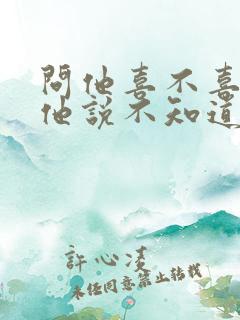 問他喜不喜
他說不知道
許心淩
未經同意禁止轉載